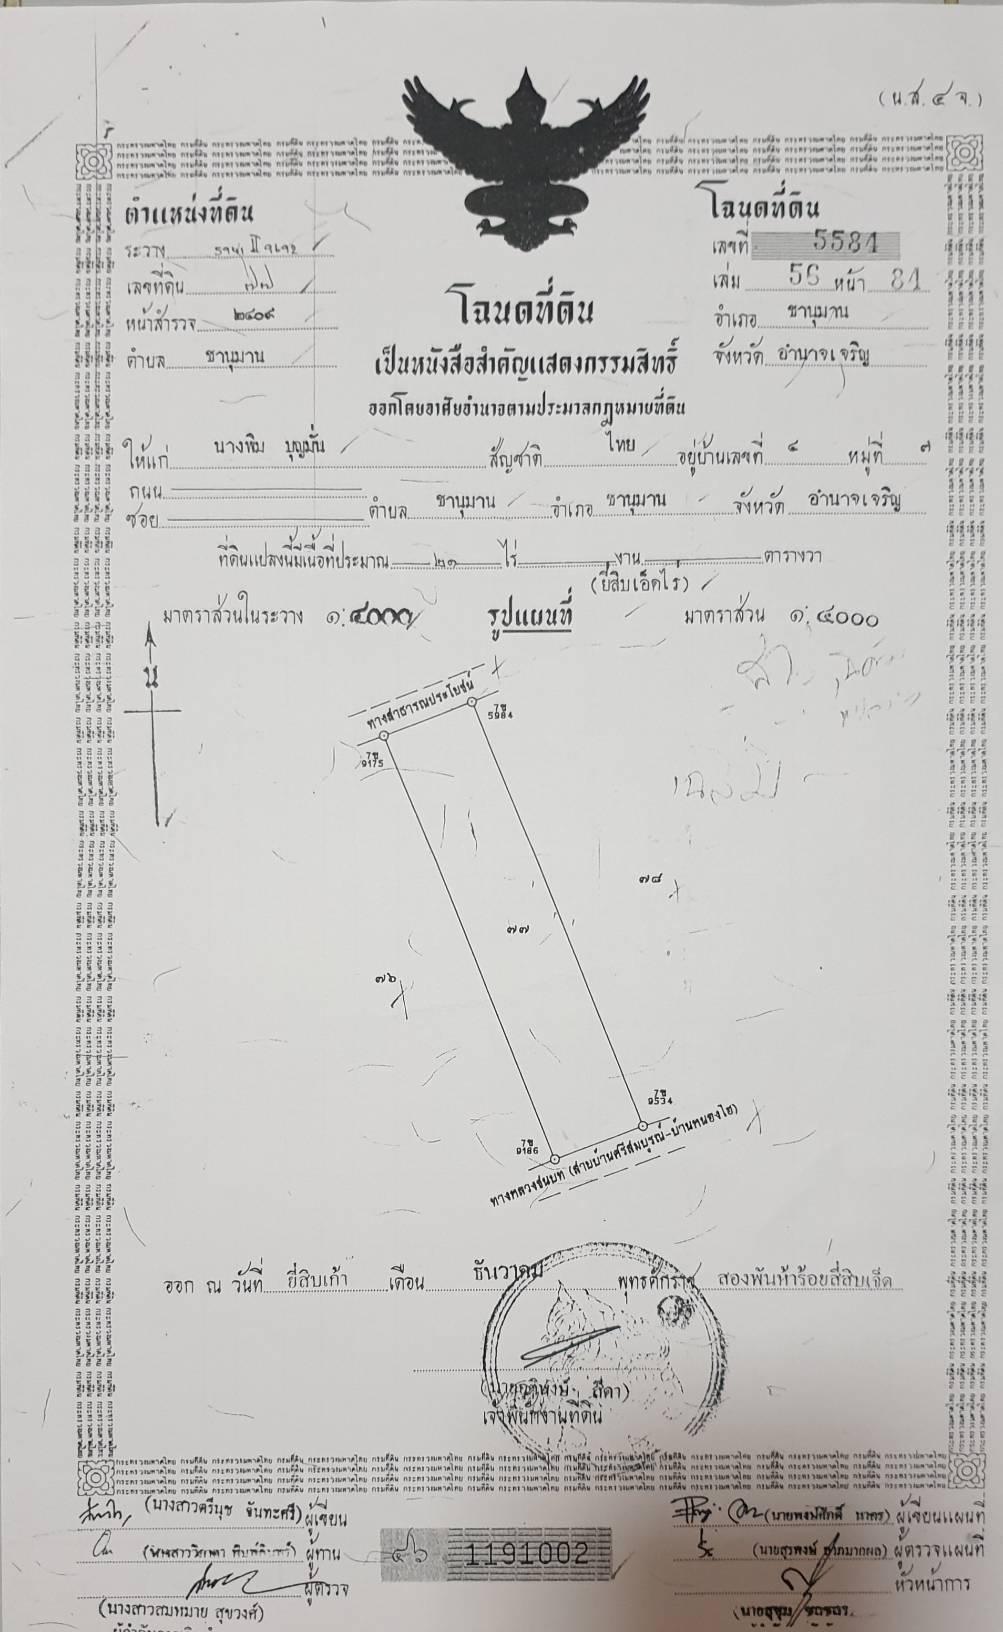 (น.ส. ๔ จ.)
ตำแหน่งที่ดิน
โฉนดที่ดิน
ระวาง
เลขที่ 5584
เลขที่ดิน ๗๗
เล่ม 56 หน้า 84
หน้าสำรวจ ๒๔๐๙
อำเภอ ชานุมาน
ตำบล ชานุมาน
จังหวัด อำนาจเจริญ
โฉนดที่ดิน
เป็นหนังสือสำคัญแสดงกรรมสิทธิ์
ออกโดยอาศัยอำนาจตามประมวลกฎหมายที่ดิน
ให้แก่ นางพิม บุญมั่น สัญชาติ ไทย อยู่บ้านเลขที่ หมู่ที่ ๗
ถนน
ซอย ตำบล ชานุมาน อำเภอ ชานุมาน จังหวัด อำนาจเจริญ
ที่ดินแปลงนี้มีเนื้อที่ประมาณ ๒๑ ไร่ งาน ตารางวา
(ยี่สิบเอ็ดไร่)
มาตราส่วนในระวาง ๑:๔๐๐๐ รูปแผนที่ มาตราส่วน ๑:๔๐๐๐
น
ทางสาธารณประโยชน์
7ชู
5984
7ชู
9175
๗๘
๗๗
๗๖
7ชู
9534
7ชู
9186
ทางหลวงชนบท (สายบ้านศรีสมบูรณ์-บ้านหนองไฮ)
ออก ณ วันที่ ยี่สิบเก้า เดือน ธันวาคม พุทธศักราช สองพันห้าร้อยสี่สิบเจ็ด
สีดา)
เจ้าพนักงานที่ดิน
(นางสาวตรีนุช จันทะศรี) ผู้เขียน
ผู้ทาน
ผู้ตรวจ
(นางสาวสมหมาย สุขวงศ์)
๔๖ 1191002
ผู้เขียนแผนที่
ผู้ตรวจแผนที่
หัวหน้าการ